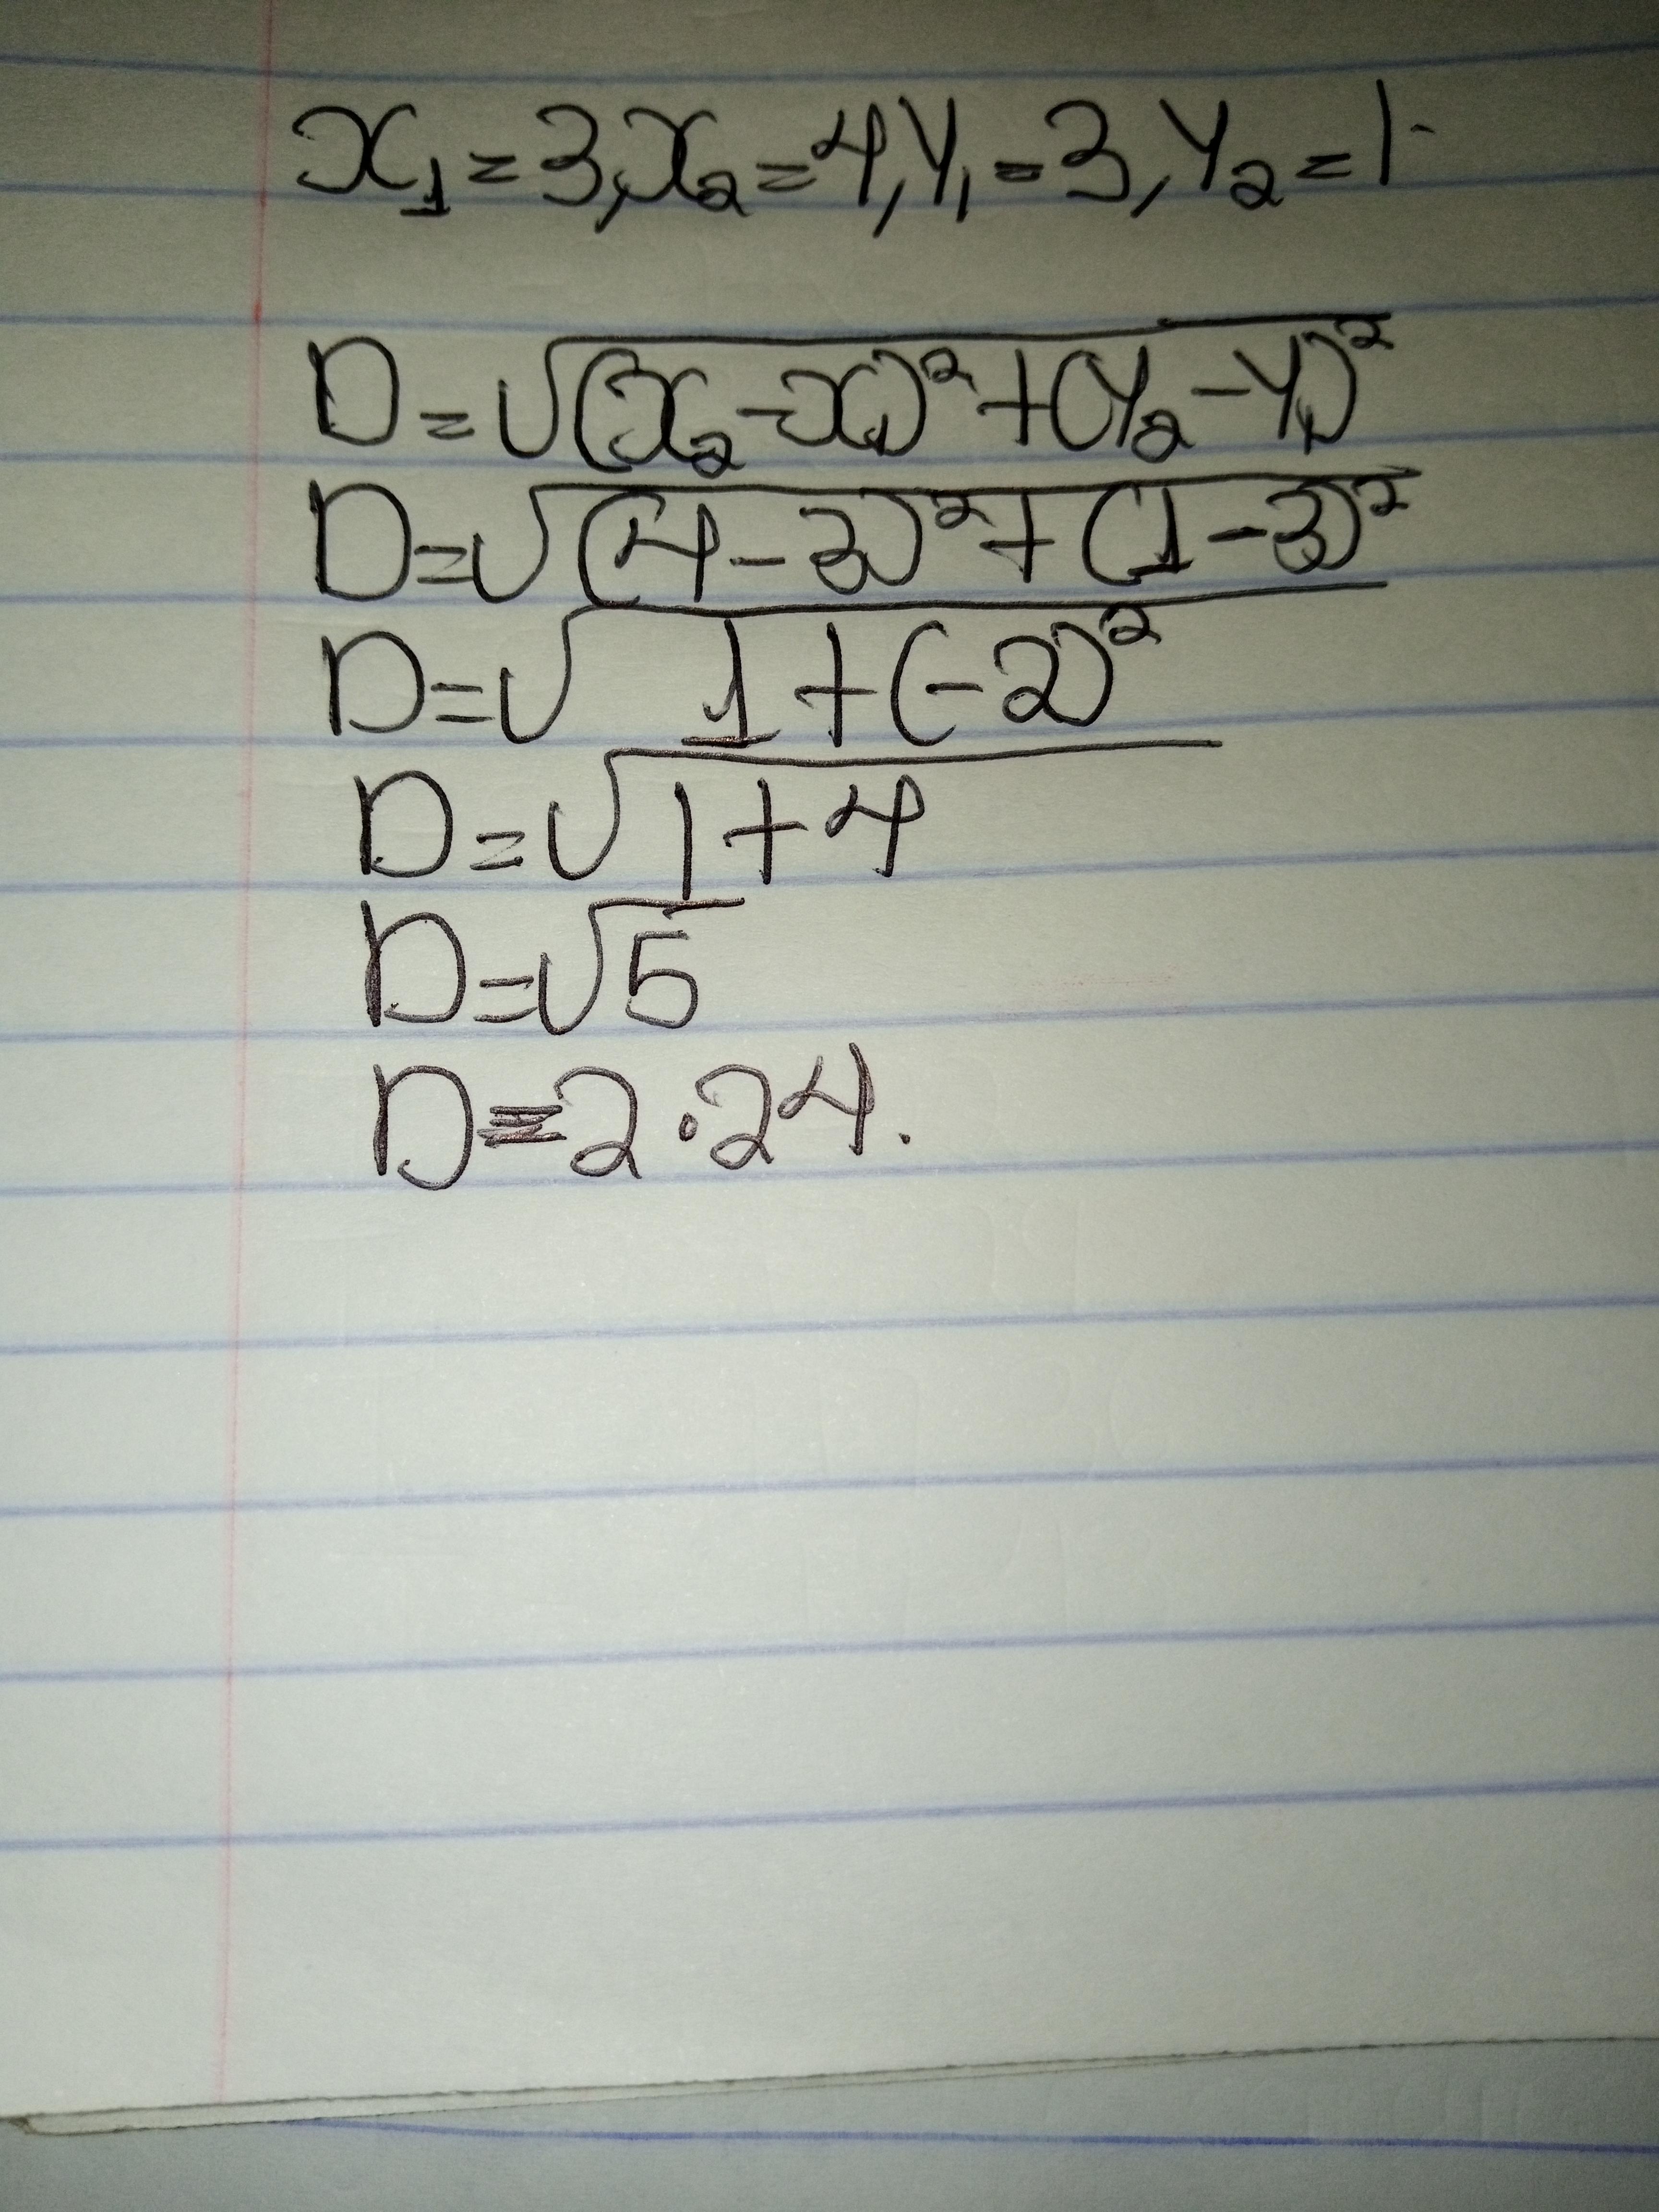 x₁=3, x₂=4, y₁=3, y₂=1.
D=√(x₂-x₁)²+(y₂-y₁)²
D=√(4-3)²+(1-3)²
D=√1+(-2)²
D=√1+4
D=√5
D=2.24.